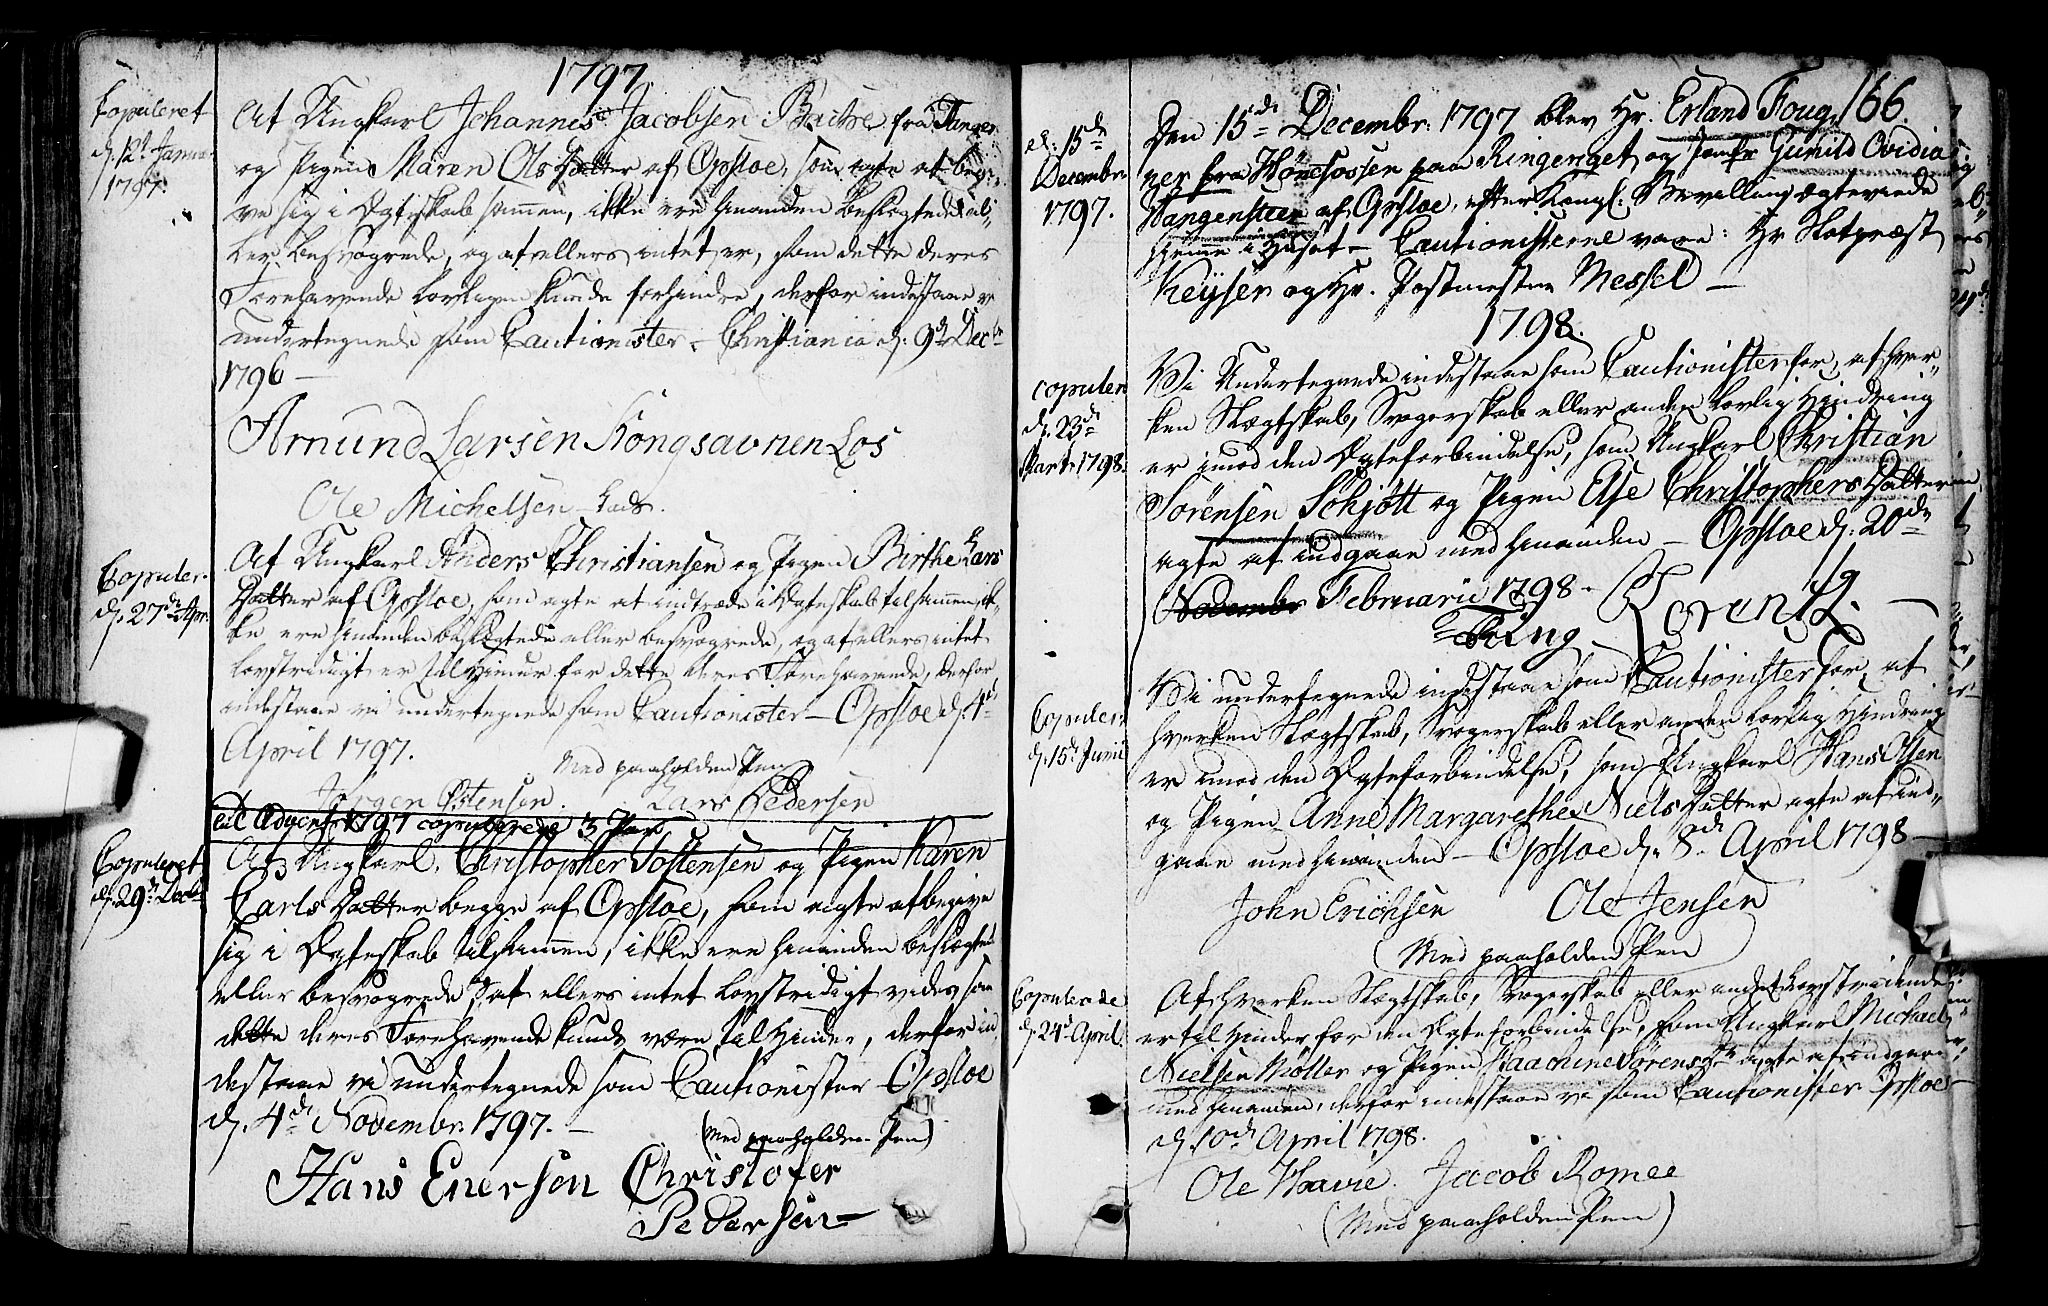 1797
Copuleret
d. 12te Januar
1797.
At Ungkarl Johannes Jacobsen Baitre fra Tanger
og Pigen Maren Ols Datter af Opsloe, som agte at begi-
ve sig i Ægteskab sammen, ikke ere hinanden beslægtede el-
ler besvogrede, og at ellers intet er, som dette deres
Forehavende lovligen kunde forhindre, derfor indestaae vi
undertegnede som Cautionister. Christiania d. 9de Decbr
1796 —
Amund Larsen Kongsavnen Los
Ole Michelsen Lods.
Copuler.
d. 27de Apr.
At Ungkarl Anders Christiansen og Pigen Birthe Lars
Datter af Opsloe, som agte at indtræde i Ægteskab tilsammen, ik-
ke ere hinanden beslægtede eller besvogrede, og at ellers intet
lovstridigt er til Hinder for dette deres Forehavende, derfor
indestaae vi undertegnede som Cautionister — Opsloe d. 4de
April 1797.
Med paaholden Pen
Jørgen Østensen. Lars Pedersen
til Advent 1797 copulerede 3 Par
Copuleret
d. 29de Decbr
At Ungkarl Christopher Tostensen og Pigen Karen
Carls Datter begge af Opsloe, som agte at begive
sig i Ægteskab tilsammen, ikke ere hinanden beslægtede
eller besvogrede, at ellers intet lovstridigt vides, som
dette deres Forehavende kunde være til Hinder, derfor in-
destaae vi undertegnede som Cautionister Opsloe
d. 4de Novembr. 1797. —
(Med paaholden Pen)
Hans Enersen Christofer
Pedersen —
166.
d. 15de
Decembr.
1797.
Den 15de Decembr. 1797 blev Hr. Erland Foug
ner fra Hønefossen paa Ringeriget og Jomfr Gunild Ovidia
Wangensteen af Opsloe, efter Kongl. Bevilling ægteviede
hjemme i Huset — Cautionisterne vare: Hr Slotspræst
Keyser og Hr. Postmester Messel —
1798.
copuleret
d. 23de
Marti 1798.
Vi Undertegnede indestaae som Cautionister for, at hver-
ken Slægtskab, Svogerskab eller anden lovlig Hindring
er imod den Ægteforbindelse, som Ungkarl Christian
Sørensen Schjøtt og Pigen Else Christophers Datter
agte at indgaae med hinanden — Opsloe d. 20de
Novembr Februarii 1798 — Lorentz —
Ring
Copuleret
d. 15de Junii
Vi undertegnede indestaae som Cautionister for, at
hverken Slægtskab, Svogerskab eller anden lovlig Hindring
er imod den Ægteforbindelse, som Ungkarl Hans Olsen
og Pigen Anne Margarethe Niels Datter agte at ind-
gaae med hinanden — Opsloe d. 8de April 1798 —
John Erichsen Ole Jensen
(Med paaholden Pen
Copulerede
d. 24d April
At hverken Slægtskab, Svogerskab eller andet Lovstridende
er til Hinder for den Ægteforbindelse, som Ungkarl Michael
Nielsen Møller og Pigen Sørensdtr agte at indgaae
med hinanden, derfor indestaae vi som Cautionister Opsloe
d. 10de April 1798.
Ole Haavie. Jacob Romee
(Med paaholden Pen)